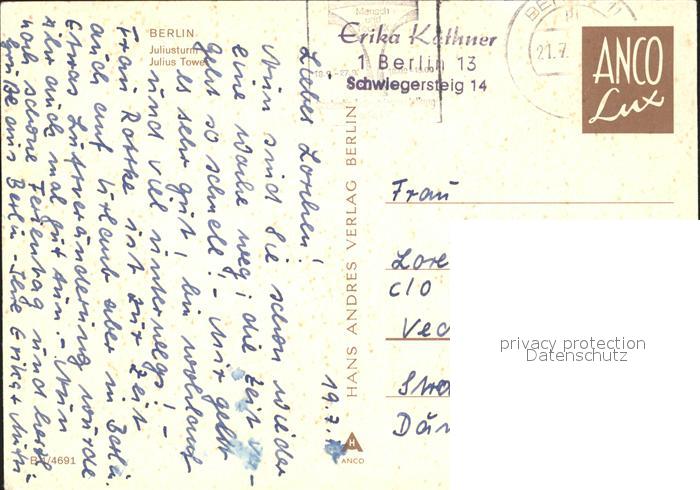 BERLIN
Juliusturm
Julius Tower
Mensch
und
Erika Kathner
1 Berlin 13
Schwiegersteig 14
21.7.
ANCO
Lux
19.7.
Liebes Lorchen!
Nun sind Sie schon wieder
eine Woche weg; die Zeit ver-
geht so schnell! - Mir geht
es sehr gut, bin wohlauf
und viel unterwegs! -
Frau Rothe ist zur Zeit
auch auf Urlaub aber in Berlin.
Etwas Luftveränderung würde
ihr auch mal gut tun. - Nun
noch schöne Ferientag und herzl.
Grüße aus Berlin - Ihre Erika +
HANS ANDRES VERLAG BERLIN
H
ANCO
Frau
Lore
c/o
Ved
Stra
Dän
privacy protection
Datenschutz
B 1/4691